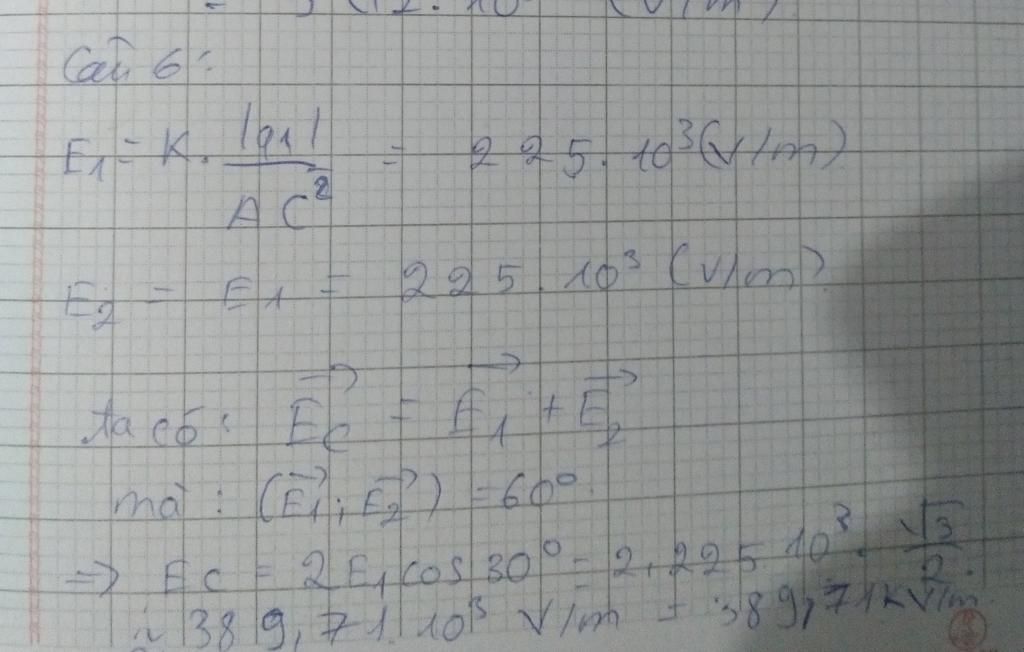 Câu 6:
E₁ = K. |q₁| / AC² = 225. 10³ (V/m)
E₂ = E₁ = 225. 10³ (V/m)
Ta có: →E_C = →E₁ + →E₂
mà: (→E₁; →E₂) = 60°
=> E_C = 2E₁ cos 30° = 2. 225. 10³. √3/2.
≈ 389,71. 10³ V/m = 389,71 kV/m.